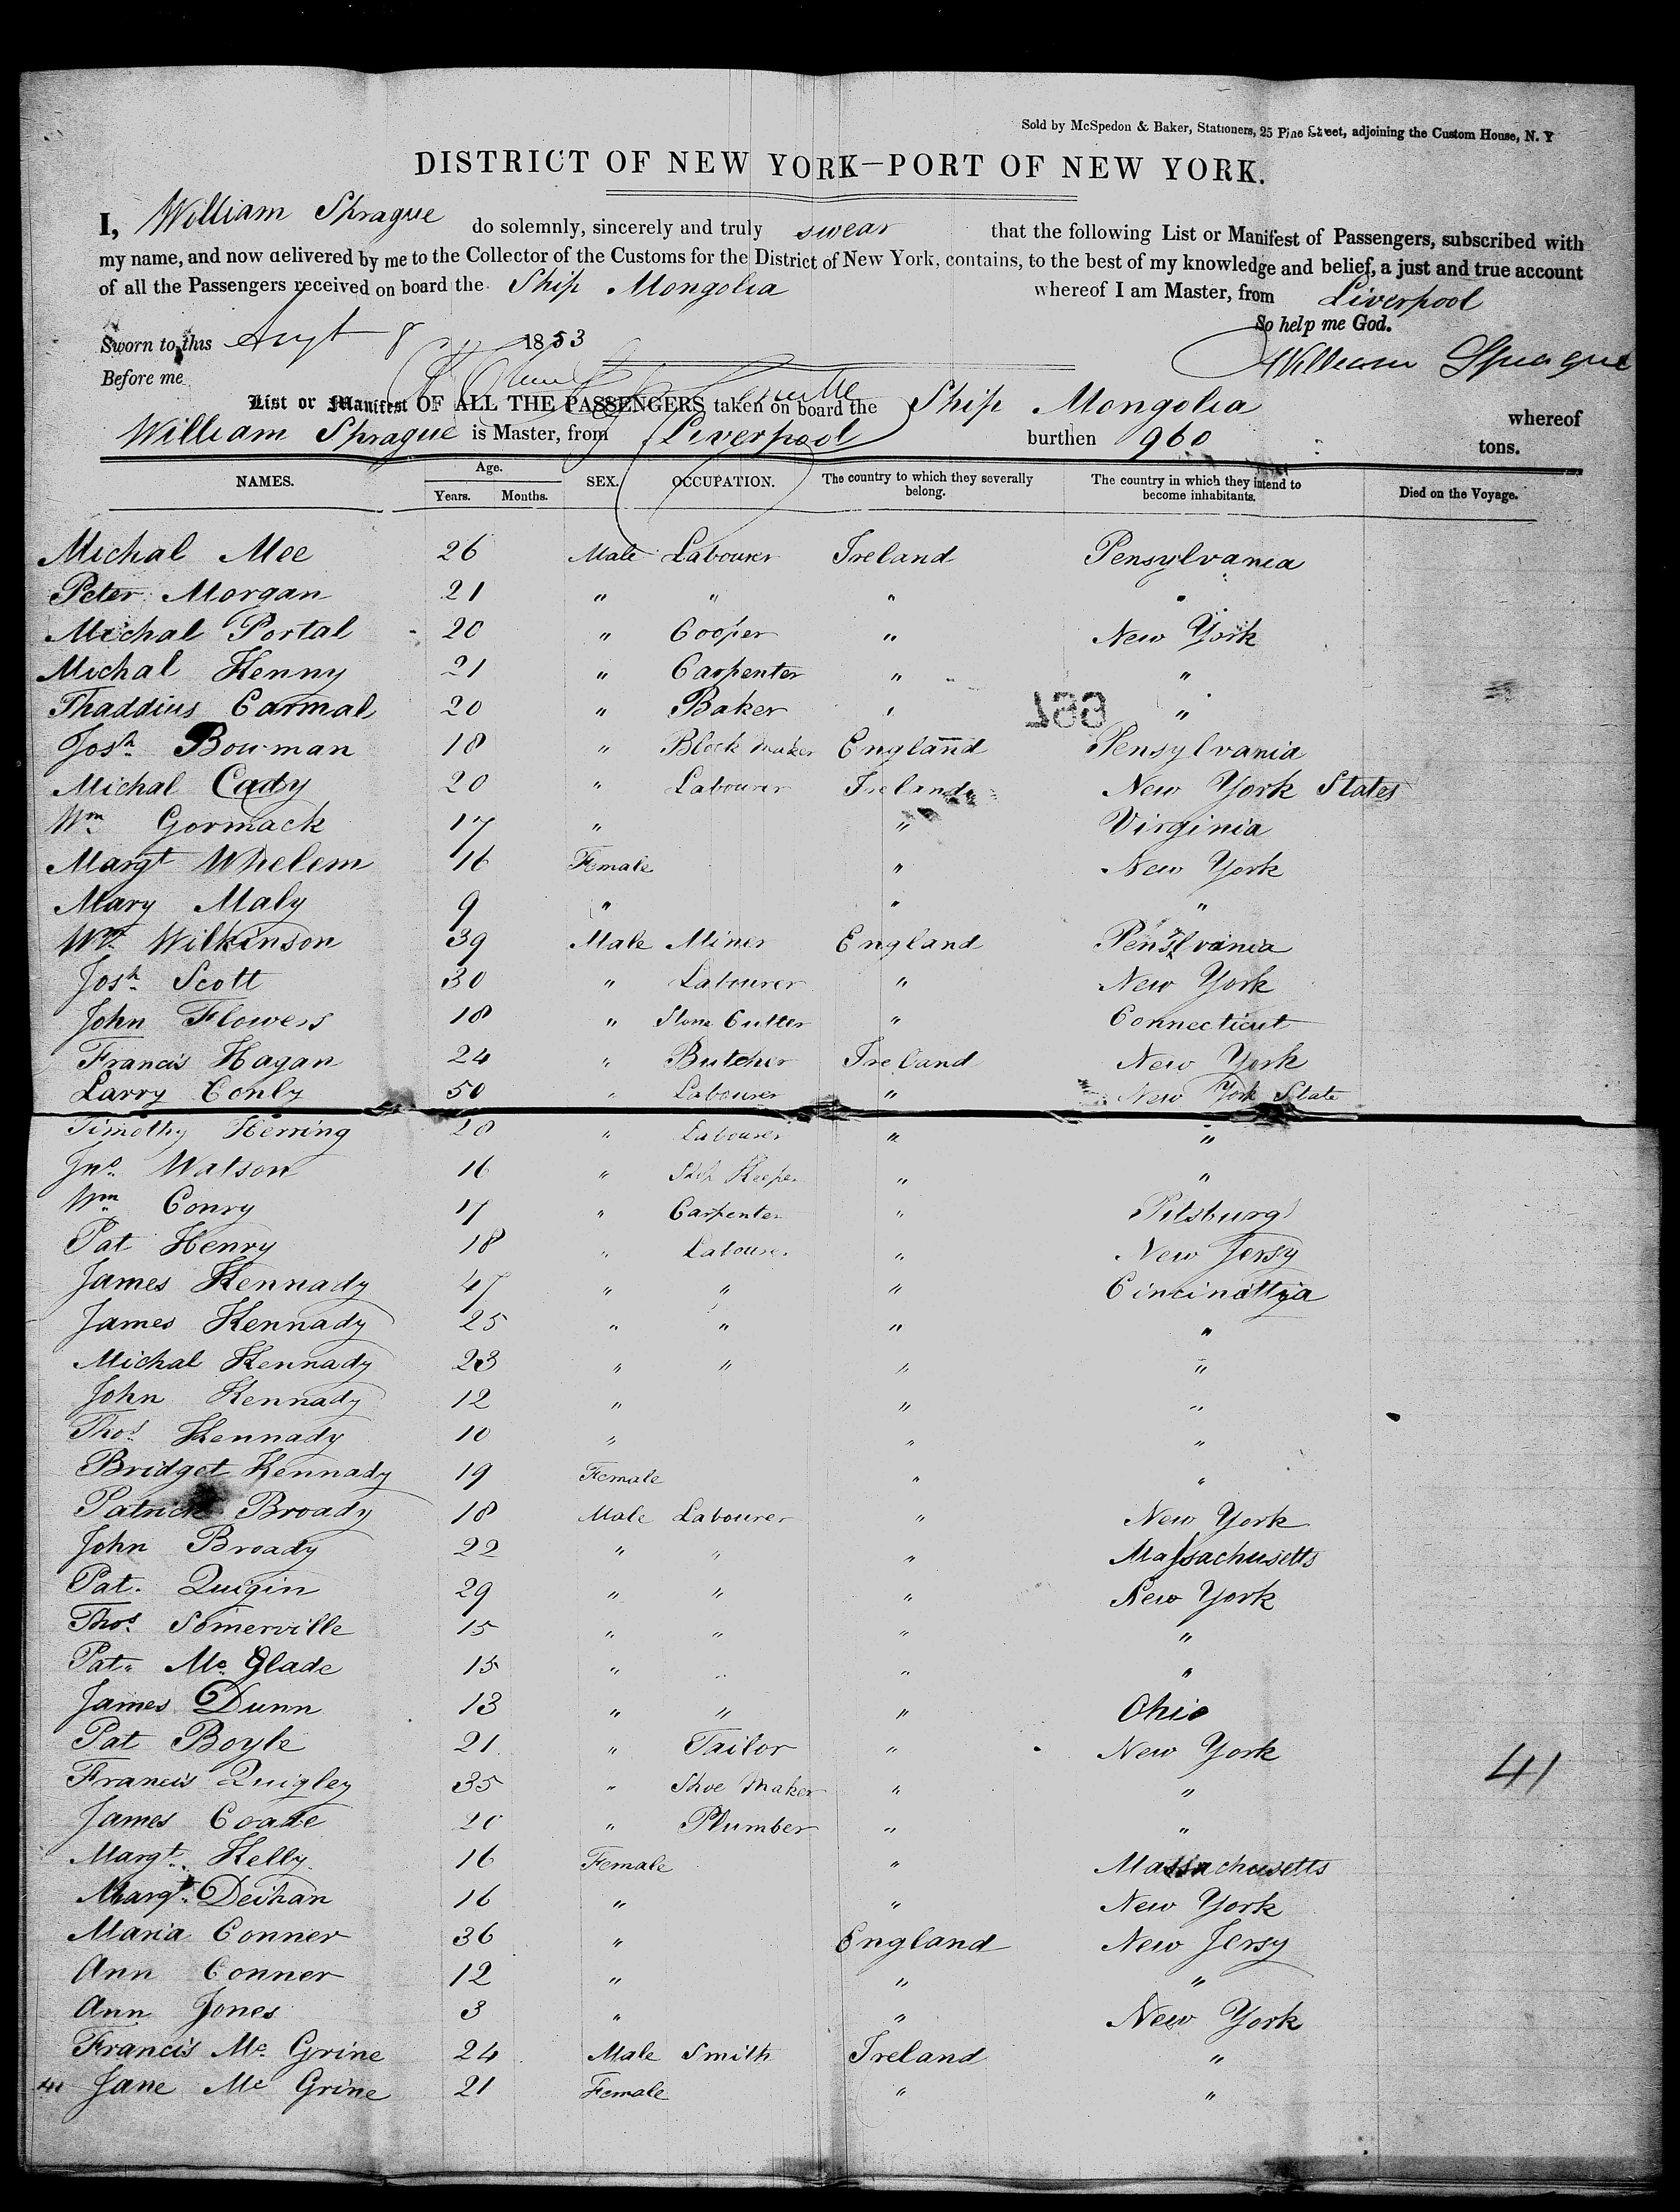 Sold by McSpedon & Baker, Stationers, 25 Pine Street, adjoining the Custom House, N. Y
DISTRICT OF NEW YORK—PORT OF NEW YORK.
I, William Sprague do solemnly, sincerely and truly swear that the following List or Manifest of Passengers, subscribed with
my name, and now delivered by me to the Collector of the Customs for the District of New York, contains, to the best of my knowledge and belief, a just and true account
of all the Passengers received on board the Ship Mongolia whereof I am Master, from Liverpool
So help me God.
Sworn to this Augt 8 1853
William Sprague
Before me
List or Manifest OF ALL THE PASSENGERS taken on board the Ship Mongolia whereof
William Sprague is Master, from Liverpool burthen 960 tons.
NAMES. Age. Years. Months. SEX. OCCUPATION. The country to which they severally belong. The country in which they intend to become inhabitants. Died on the Voyage.
Michal Mee 26 Male Labourer Ireland Pensylvania
Peter Morgan 21 " " " "
Michal Portal 20 " Cooper " New York
Michal Kenny 21 " Carpenter " "
Thaddius Carmal 20 " Baker " "
Josh Bowman 18 " Block Maker England Pensylvania
Michal Cady 20 " Labourer Ireland New York States
Wm Gormack 17 " " Virginia
Margt Whelem 16 Female " New York
Mary Maly 9 " " "
Wm Wilkinson 39 Male Miner England Pensylvania
Josh Scott 30 " Labourer " New York
John Flowers 18 " Stone Cutter " Connecticut
Francis Hagan 24 " Butcher Ireland New York
Larry Conly 50 " Labourer " New York State
Timothy Herring 28 " Labourer " "
Jno Watson 16 " Shop Keeper " "
Wm Conry 17 " Carpenter " Pitsburg
Pat Henry 18 " Labourer " New Jersy
James Kennady 47 " " " Cincinattya
James Kennady 25 " " " "
Michal Kennady 23 " " " "
John Kennady 12 " " "
Thos Kennady 10 " " "
Bridget Kennady 19 Female " "
Patrick Broady 18 Male Labourer " New York
John Broady 22 " " " Massachusetts
Pat. Quigin 29 " " " New York
Thos Somerville 15 " " " "
Pat. Mc Glade 15 " " " "
James Dunn 13 " " " Ohio
Pat Boyle 21 " Tailor " New York
Francis Quigley 35 " Shoe Maker " " 41
James Coade 20 " Plumber " "
Margt Kelly 16 Female " Massachusetts
Margt Deihan 16 " " New York
Maria Conner 36 " England New Jersy
Ann Conner 12 " " "
Ann Jones 3 " " New York
Francis Mc Grine 24 Male Smith Ireland "
41 Jane Mc Grine 21 Female " "